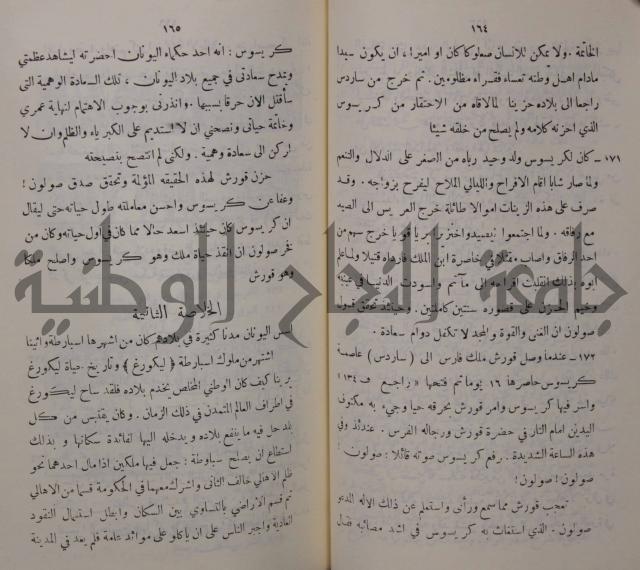 ١٦٤
الخاتمة . ولا يمكن للانسان صعلوكا كان او اميرا ، ان يكون سعيدا
مادام اهل وطنه تعساء فقراء مظلومين . ثم خرج من ساردس
راجعا الى بلاده حزينا لما لاقاه من الاحتقار من كريسوس
الذي احزنه كلامه ولم يصلح من خلقه شيئا
١٧١ - كان لكريسوس ولد وحيد رباه من الصغر على الدلال والتنعم
ولما صار شابا اقام الافراح والليالي الملاح ليفرح بزواجه . وقد
صرف على هذه الزينات اموالا طائلة خرج العريس الى الصيد
مع رفاقه . ولما اجتمعوا خرج سهم من
احد الرفاق واصاب مقتلا في خاصرة ابن الملك فارداه قتيلا ولما علم
ابوه بذلك انقلبت افراحه الى مآتم واسودت الدنيا في عينيه
وخيم الحزن على قصوره سنتين كاملتين . وحينئذ تحقق قول
صولون ان الغنى والقوة والمجد لا تكفل دوام سعادة .
١٧٢ - عندما وصل قورش ملك فارس الى ( ساردس ) عاصمة
كريسوس حاصرها ١٦ يوما ثم فتحها « راجع ف ١٣٤ »
واسر فيها كريسوس وامر قورش بحرقه حيا وجيء به مكتوف
اليدين امام النار في حضرة قورش ورجاله الفرس . عندئذ وفي
هذه الساعة الشديدة . رفع كريسوس صوته قائلا : صولون !
صولون ! صولون !
تعجب قورش مما سمع ورأى واستعلم عن ذلك الاله المدعو
صولون . الذي استغاث به كريسوس في اشد مصائبه فقال
١٦٥
كريسوس : انه احد حكماء اليونان احضرته ليشاهد عظمتي
ويمدح سعادتي في جميع بلاد اليونان ، تلك السعادة الوهمية التي
سأقتل الان حرقا بسببها . وانذرني بوجوب الاهتمام لنهاية عمري
وخاتمة حياتي ونصحني ان لا استديم على الكبرياء والظلم وان لا
اركن الى سعادة وهمية . ولكني لم انتصح بنصيحته
حزن قورش لهذه الحقيقة المؤلمة وتحقق صدق صولون !
وعفا عن كريسوس واحسن معاملته طول حياته حتى ليقال
ان كريسوس كان حينئذ اسعد حالا مما كان في اول حياته وكان من
فخر صولون ان انقذ حياة ملك وهو كريسوس واصلح ملكا
وهو قورش
الخلاصة الثانية
اسس اليونان مدنا كثيرة في بلادهم كان من اشهرها اسبارطة واثينا
اشتهر من ملوك اسبارطة ( ليكورغ ) وتاريخ حياة ليكورغ
يرينا كيف كان الوطني المخلص يخدم بلاده فلقد ساح ليكورغ
في اطراف العالم المتمدن في ذلك الزمان . وكان يقتبس من كل
بلد حل فيه ما ينفع بلاده ويدخله اليها لفائدة سكانها و بذلك
استطاع ان يصلح سباوطة : جعل فيها ملكين اذا مال احدهما نحو
ظلم الاهالي خالف الثاني واشرك معهما في الحكومة قسما من الاهالي
ثم قسم الاراضي بالتساوي بين السكان وابطل استعمال النقود
العادية واجبر الناس على ان ياكلو على موائد عامة فلم يعد في المدينة
جامعة النجاح الوطنية